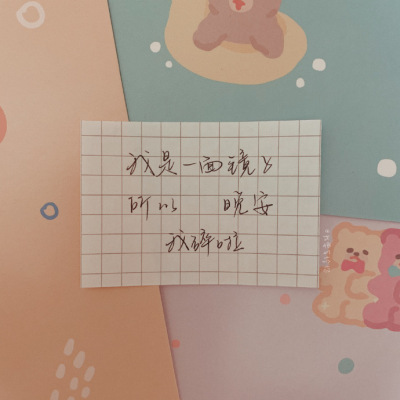 我是一面镜子
所以　　晚安
我碎啦